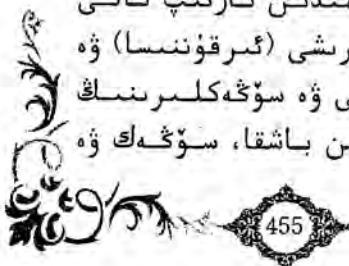 تارتىپ
رىشى (ئىرقۇننىسا) ۋە
ى ۋە سۆڭەكلىرىنىڭ
ىن باشقا، سۆڭەك ۋە
455